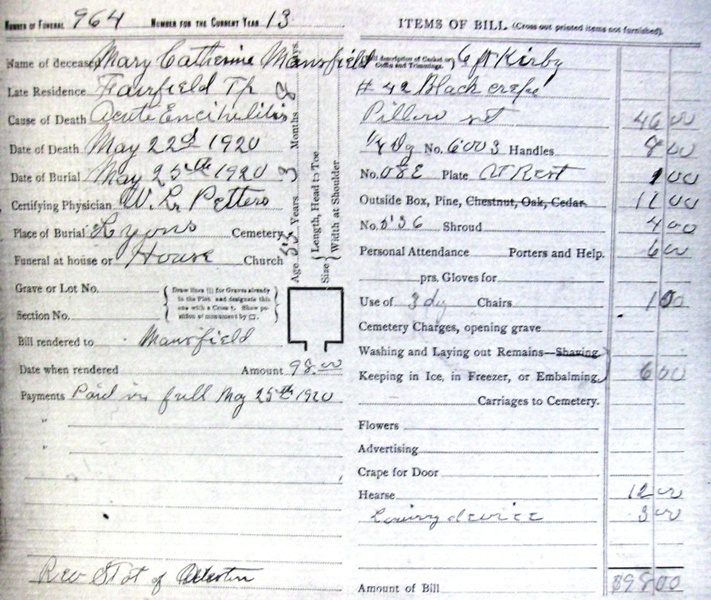 NUMBER OF FUNERAL 964 NUMBER FOR THE CURRENT YEAR 13
Name of deceased Mary Catherine Mansfield
Late Residence. Fairfield Tp
Cause of Death Acute Encihilitis
Date of Death May 22d 1920
Date of Burial May 25th 1920
Certifying Physician W. L. Petters
Place of Burial Lyons Cemetery
Funeral at house or House Church
Age Years Months Days.
Size { Length, Head to Toe
Width at Shoulder
Grave or Lot No.
Section No.
{ Draw lines for Graves already in the Plot and designate this one with a Cross †. Show position of monument by □. }
Bill rendered to Mansfield
Date when rendered Amount 98.00
Payments Paid in full May 25th 1920
"
"
Rev Stot of
ITEMS OF BILL (Cross out printed items not furnished).
Full description of Casket or Coffin and Trimmings. 6 ft Kirby
# 42 Black crepe
Pillow set 46 00
No. 6003 Handles 8 00
No. 08E Plate At Rest 1 00
Outside Box, Pine, Chestnut, Oak, Cedar. 11 00
No. 536 Shroud 4 00
Personal Attendance Porters and Help. 6 00
prs. Gloves for
Use of 3 dy Chairs 1 00
Cemetery Charges, opening grave
Washing and Laying out Remains—Shaving.
Keeping in Ice, in Freezer, or Embalming. 6 00
Carriages to Cemetery.
Flowers
Advertising
Crape for Door
Hearse 12 00
Lowing device 3 00
Amount of Bill $98 00